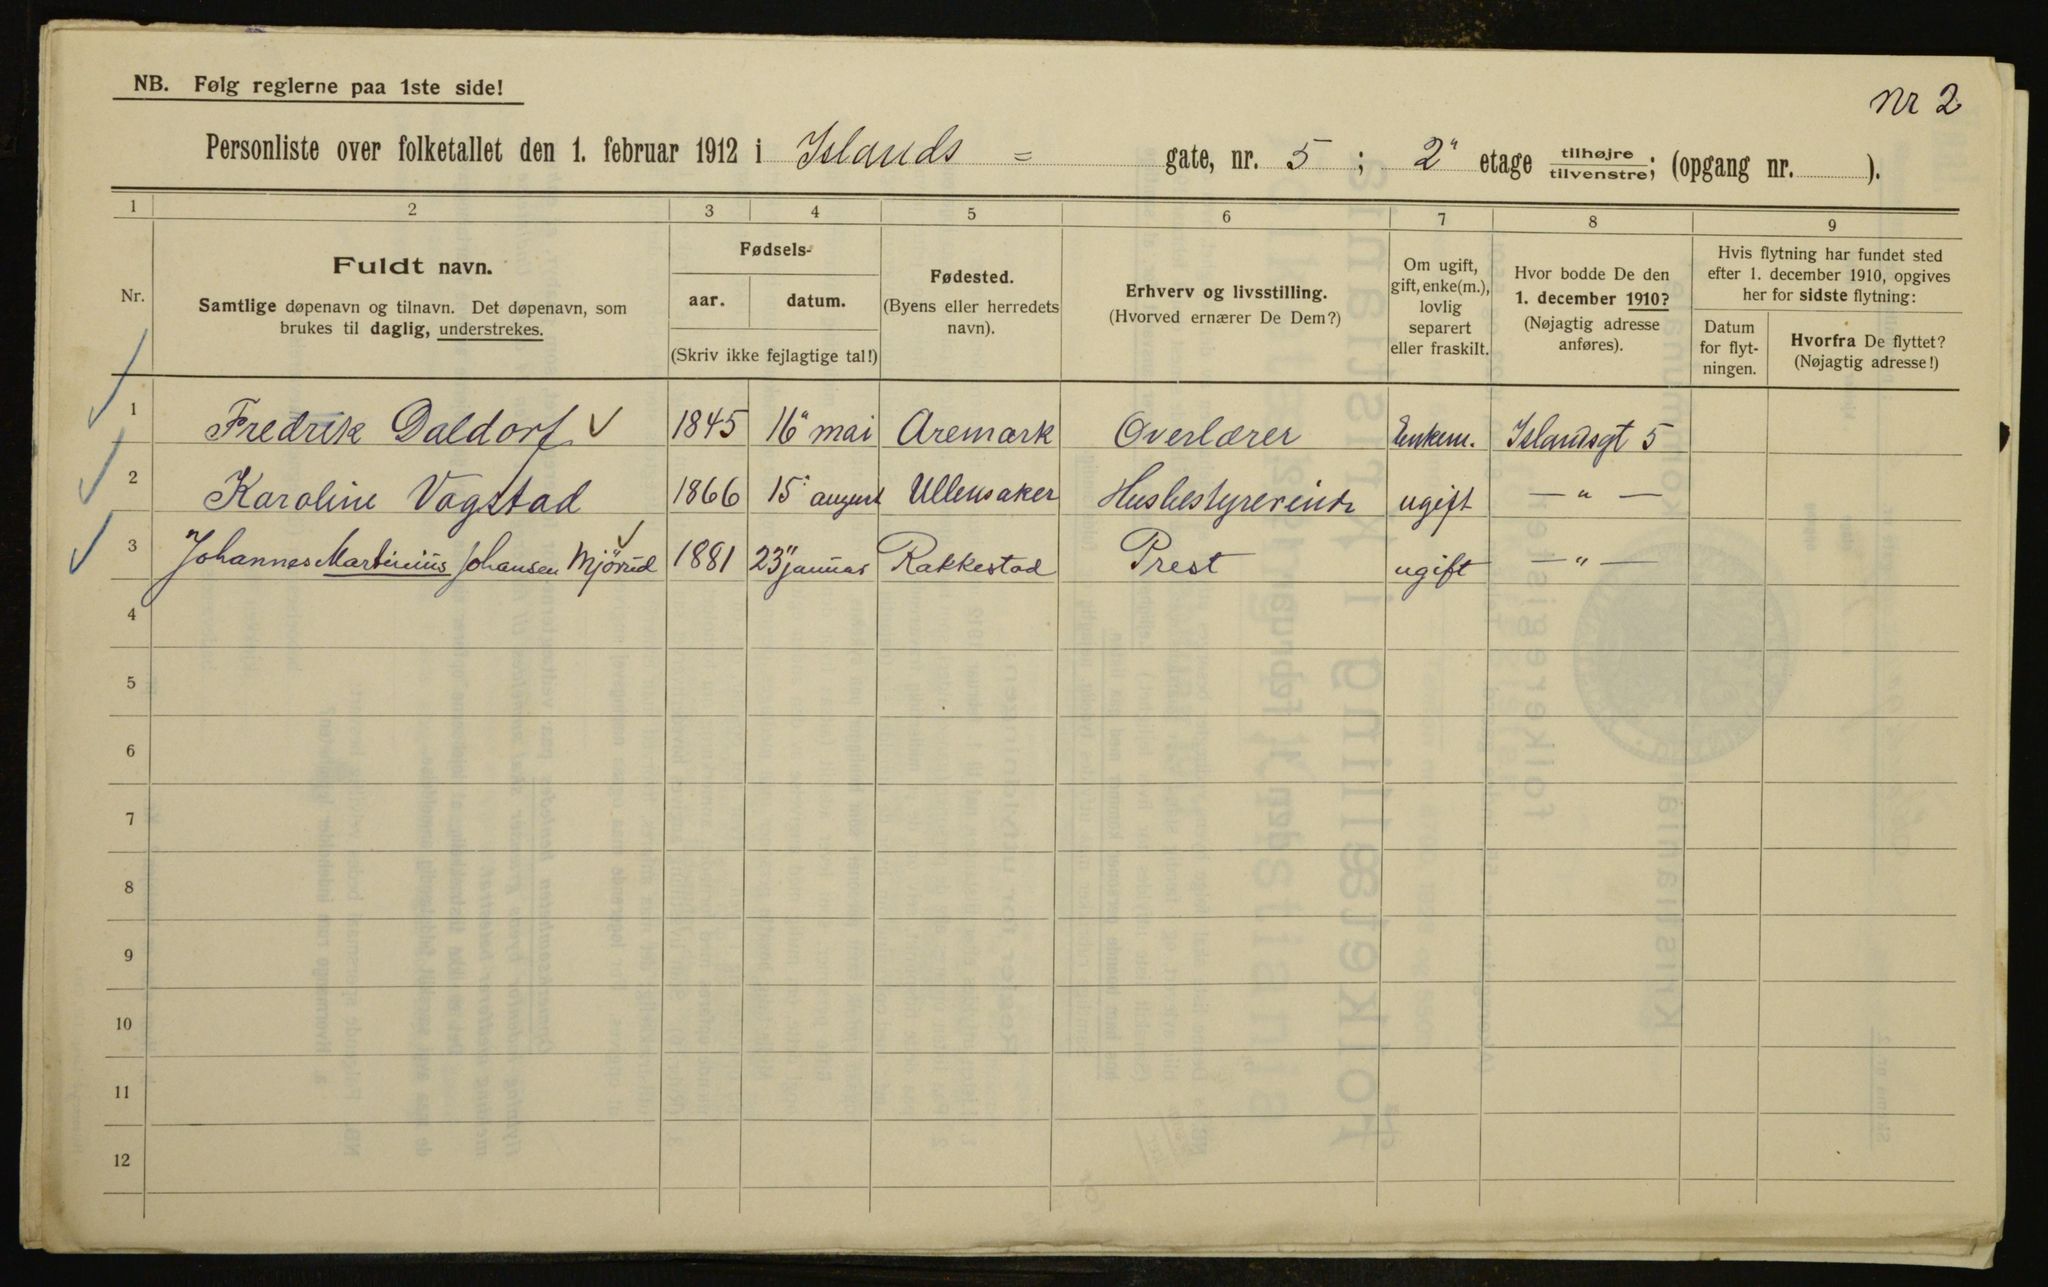 NB. Følg reglerne paa 1ste side!
nr 2
Personliste over folketallet den 1. februar 1912 i Islands = gate, nr. 5 ; 2" etage tilhøjre tilvenstre; (opgang nr. ).
1 2 3 4 5 6 7 8 9
Nr.
Fuldt navn.
Samtlige døpenavn og tilnavn. Det døpenavn, som
brukes til daglig, understrekes.
Fødsels-
aar. datum.
(Skriv ikke fejlagtige tal!)
Fødested.
(Byens eller herredets
navn).
Erhverv og livsstilling.
(Hvorved ernærer De Dem?)
Om ugift,
gift, enke(m.),
lovlig
separert
eller fraskilt.
Hvor bodde De den
1. december 1910?
(Nøjagtig adresse
anføres).
Hvis flytning har fundet sted
efter 1. december 1910, opgives
her for sidste flytning:
Datum
for flyt-
ningen.
Hvorfra De flyttet?
(Nøjagtig adresse!)
1 Fredrik Daldorf 1845 16" mai Aremark Overlærer Enkem. Islandsgt 5
2 Karoline Vogstad 1866 15" august Ullensaker Husbestyrerinde ugift — " —
3 Johannes Martinius Johansen Mjörud 1881 23" januar Rakkestad Prest ugift — " —
4
5
6
7
8
9
10
11
12